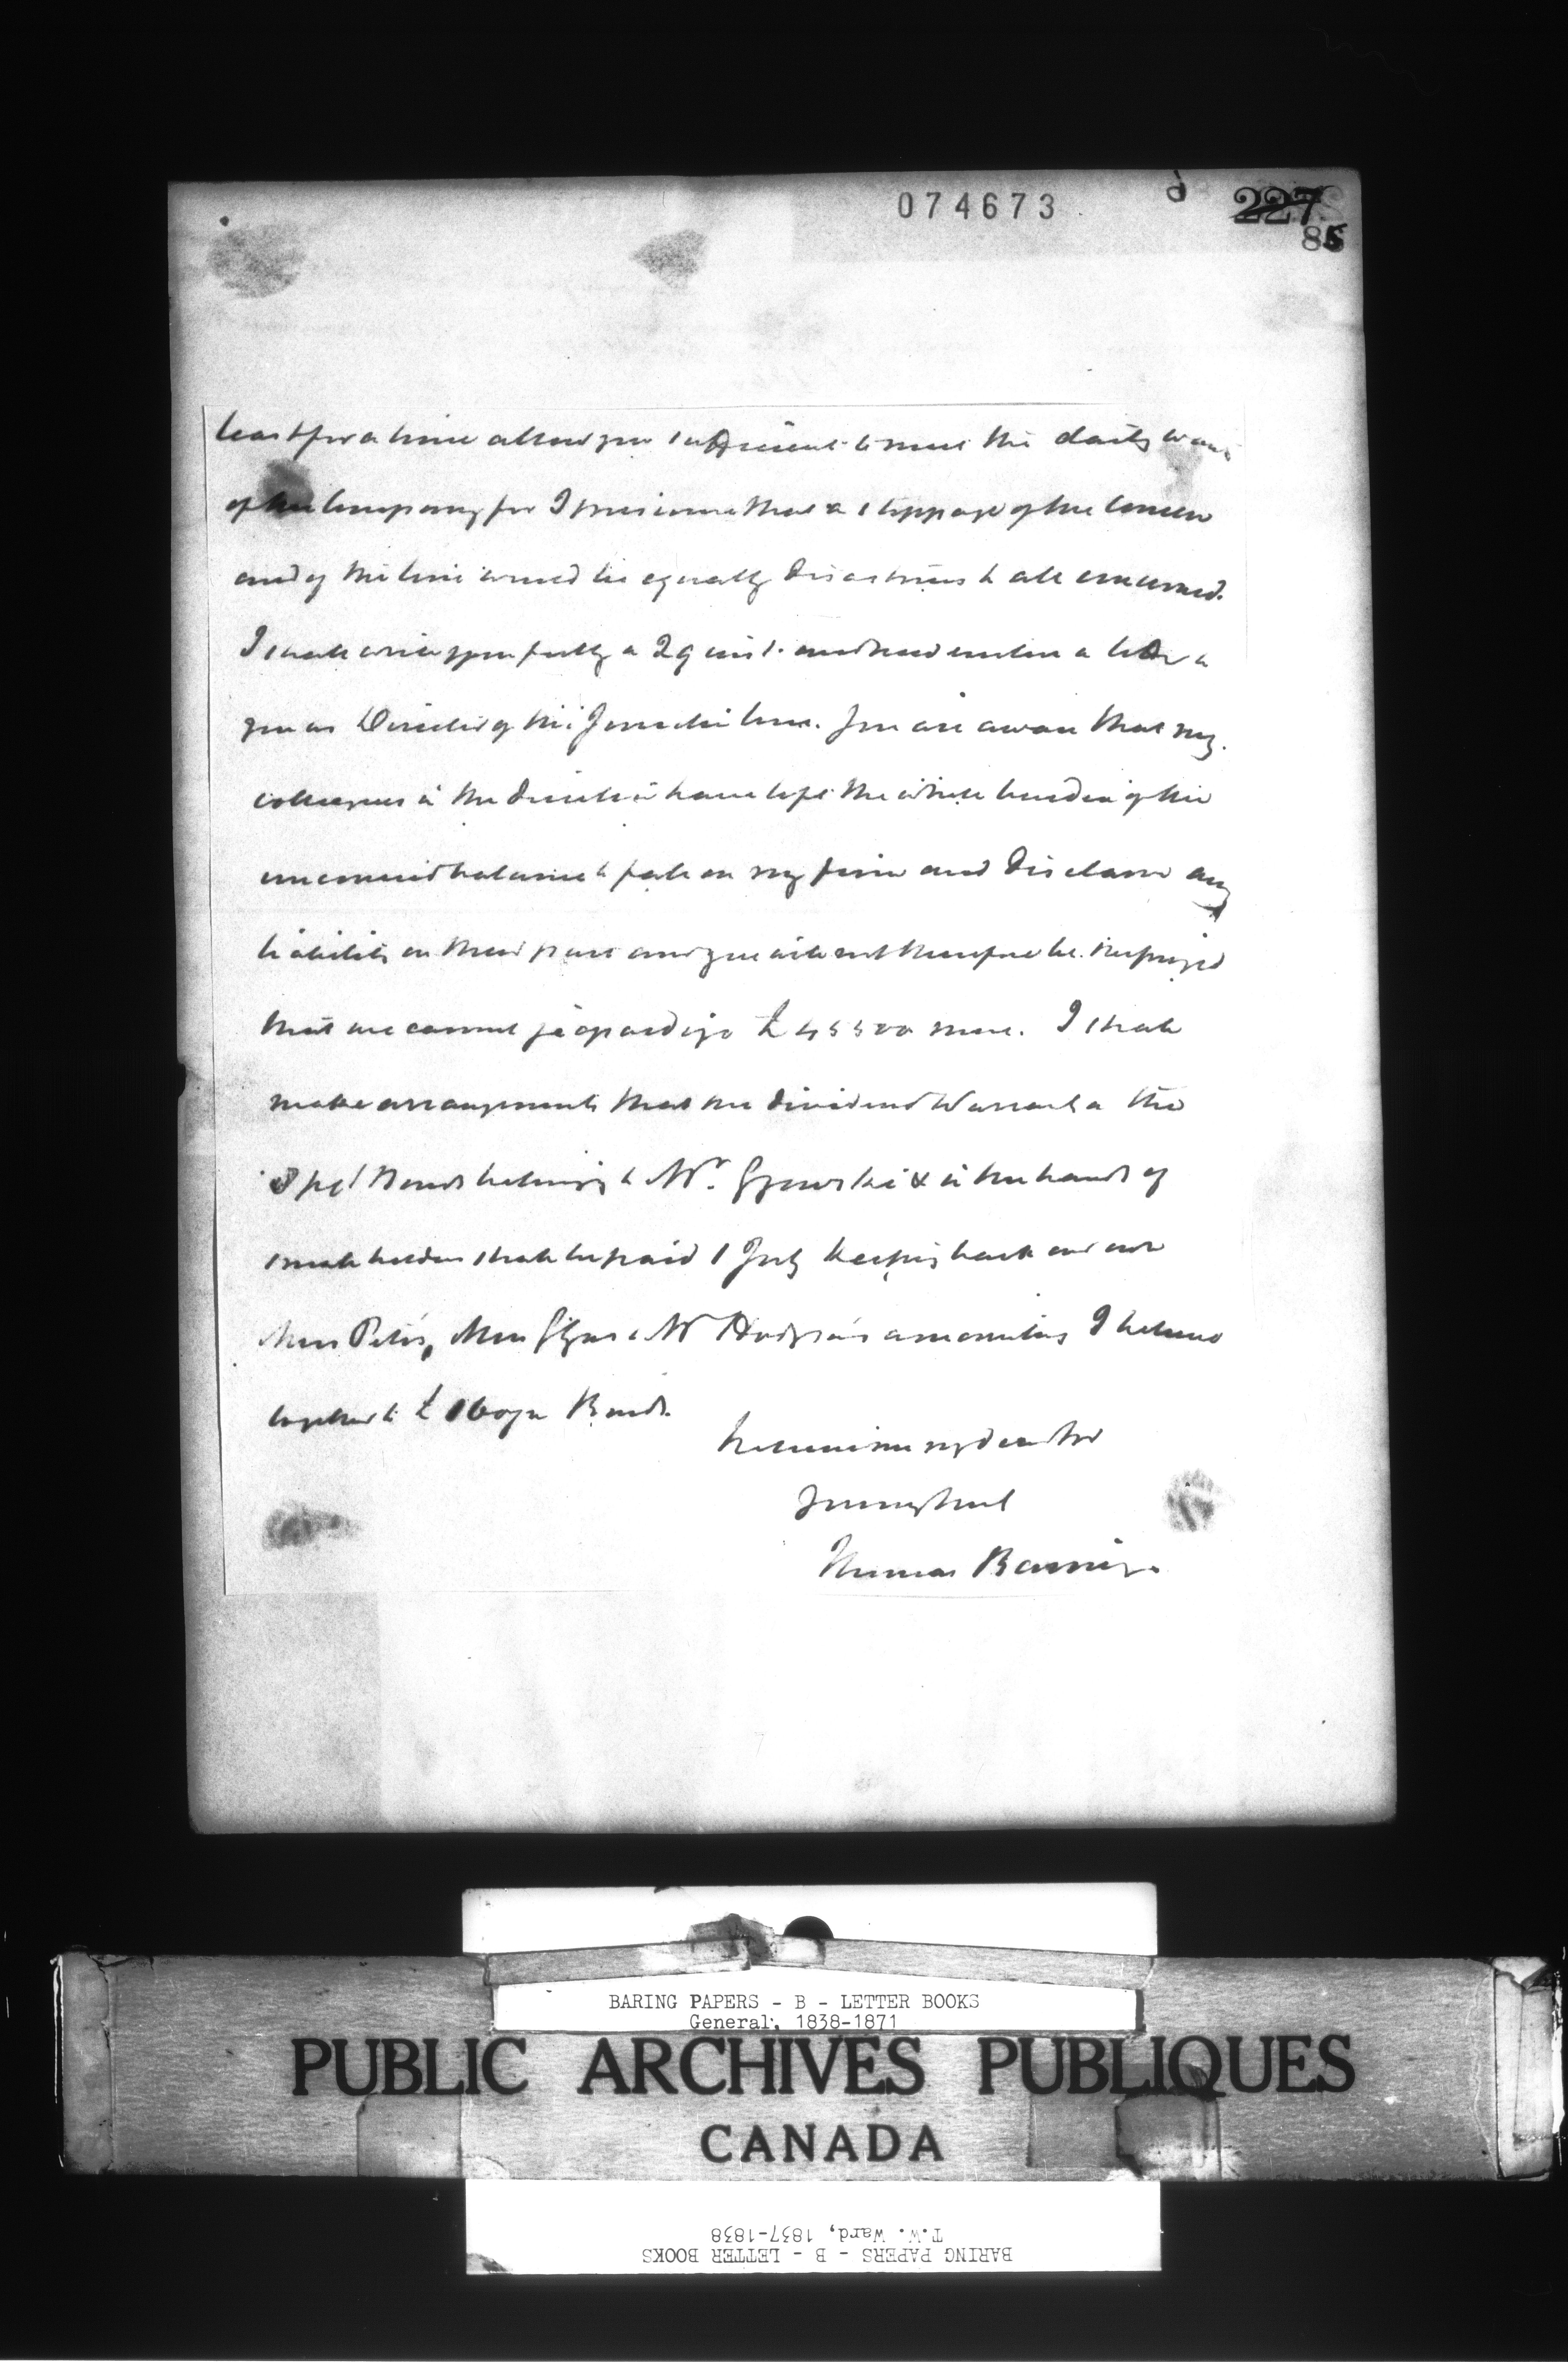 074673
227
85
least for a time allow you sufficient to meet the daily wants
of the Company for I presume that a stoppage of the concern
and of the line would be equally disastrous to all concerned.
I shall write you fully on 29 inst. and send under a letter to
you as Director of the Junction line. You are aware that my
colleagues in the direction have left the whole burden of the
uncovered balance to fall on my firm and disclaim any
liability on their part and you will not therefore be surprized
that we cannot jeopardize £45500 more. I shall
make arrangements that the dividend Warrants on the
Bonds belonging to Mr. Gzowski & in the hands of
small holders shall be paid 1 July keeping back our own
Messrs Peto's, Messrs Glyns & Mr Hodgson's amounting I believe
together to £ Bonds.
Believe me my dear Sir
Yours truly
Thomas Baring.
BARING PAPERS - B - LETTER BOOKS
General, 1838-1871
PUBLIC ARCHIVES PUBLIQUES
CANADA
T.W. Ward, 1837-1838
BARING PAPERS - B - LETTER BOOKS